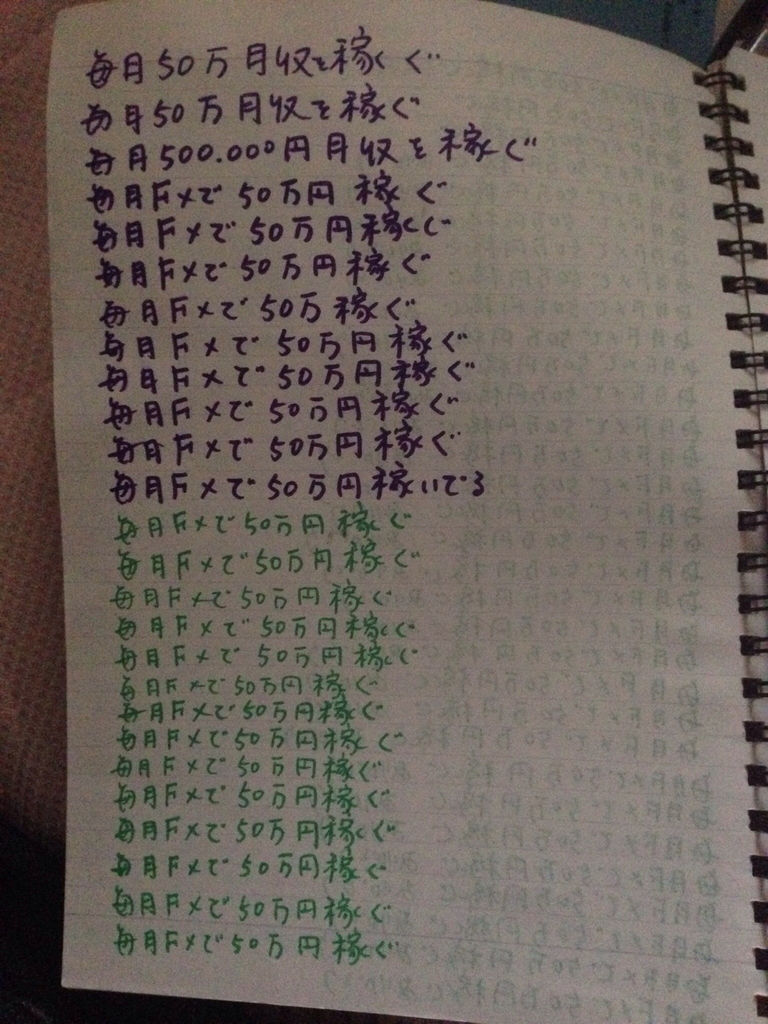 毎月50万月収を稼ぐ
毎月50万月収を稼ぐ
毎月500.000円月収を稼ぐ
毎月Fメで50万円稼ぐ
毎月Fメで50万円稼ぐ
毎月Fメで50万円稼ぐ
毎月Fメで50万稼ぐ
毎月Fメで50万円稼ぐ
毎月Fメで50万円稼ぐ
毎月Fメで50万円稼ぐ
毎月Fメで50万円稼ぐ
毎月Fメで50万円稼いでる
毎月Fメで50万円稼ぐ
毎月Fメで50万円稼ぐ
毎月Fメで50万円稼ぐ
毎月Fメで50万円稼ぐ
毎月Fメで50万円稼ぐ
毎月Fメで50万円稼ぐ
毎月Fメで50万円稼ぐ
毎月Fメで50万円稼ぐ
毎月Fメで50万円稼ぐ
毎月Fメで50万円稼ぐ
毎月Fメで50万円稼ぐ
毎月Fメで50万円稼ぐ
毎月Fメで50万円稼ぐ
毎月Fメで50万円稼ぐ